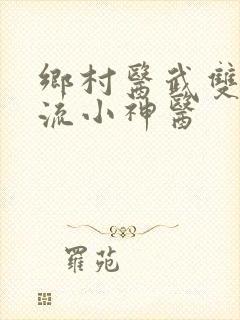 鄉村醫武雙
流小神醫
羅苑